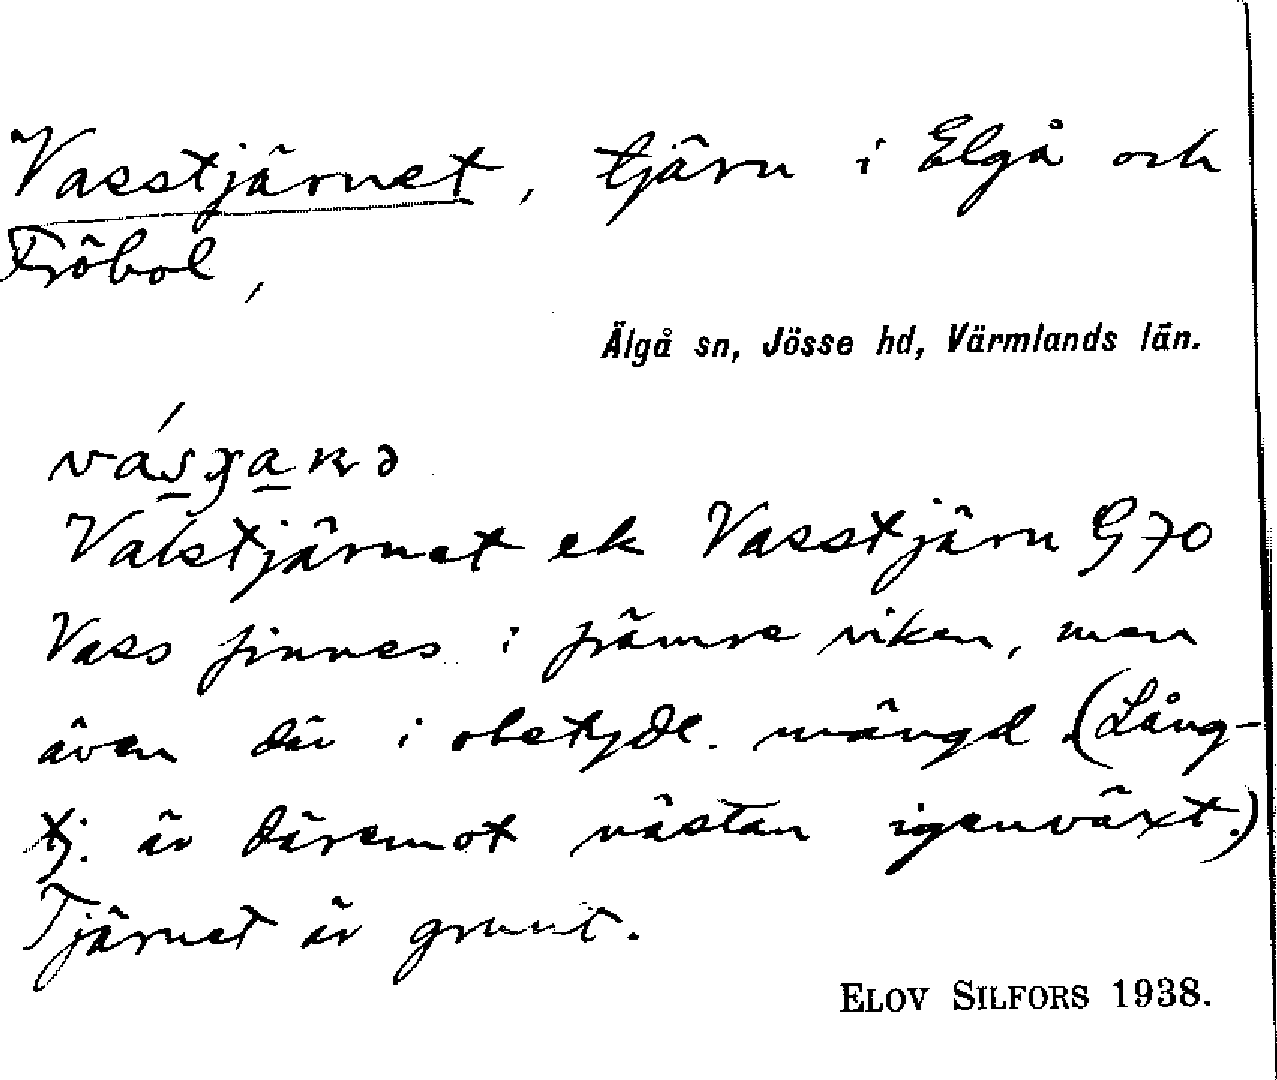 Vasstjärnet, tjärn i Elgå och
Fröbol,
Älgå sn, Jösse hd, Värmlands län.
Valstjärnet ek Vasstjärn G 70
Vass finnes i främre viken, men
även där i obetydl. mängd. (Lång-
tj. är däremot nästan igenväxt.)
Tjärnet är grunt.
ELOV SILFORS 1938.